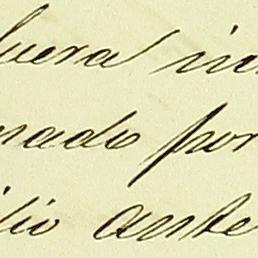 uera in
nado por
lio ante